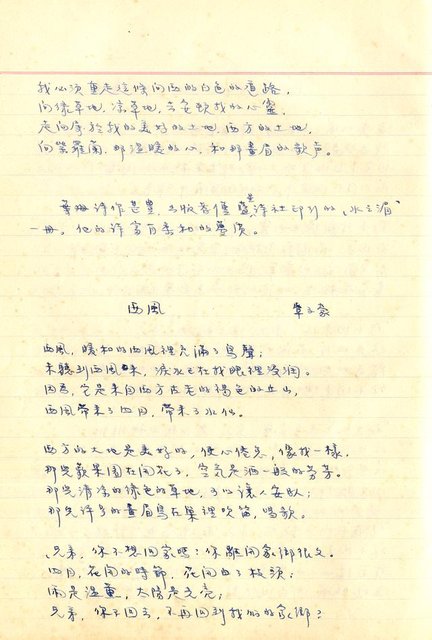 我必須重走這條向西的白色的道路，
向綠草地，涼草地，去安頓我的心靈，
走向屬於我的美好的土地，西方的土地，
向紫羅蘭，那溫暖的心，和那畫眉的歌声。
詩作甚豐，出版者僅藍星詩社印行的「水之湄」
一冊，他的詩富有柔和的
西風
西風，暖和的西風裡充滿了鳥聲；
未聽到西風來，淚水已在我眼裡
因為，它是來自西方古老的褐色的丘山，
西風帶來了四月，帶來了水仙。
西方的大地是美好的，使心倦，像我一樣，
那兒蘋果園在開花了，空氣是酒一般的芬芳。
那兒清涼的綠色的草地，可以讓人安臥；
那兒許多的畫眉鳥在巢裡吹笛，唱歌。
「兄弟，你不想回家嗎？你離開家鄉很久。
四月，花開的時節，花開白了枝頭；
雨是溫、太陽是光亮；
兄弟，你不回去，不再回到我們的家鄉？